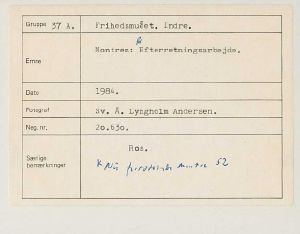 Gruppe 37 A. Frihedsmuseet. Indre.
Emne Montres: Efterretningsarbejde.
Dato 1984.
Fotograf Sv. Å. Lyngholm Andersen.
Neg. nr. 20.630.
Særlige bemærkninger Ros.
* Nu montre 52